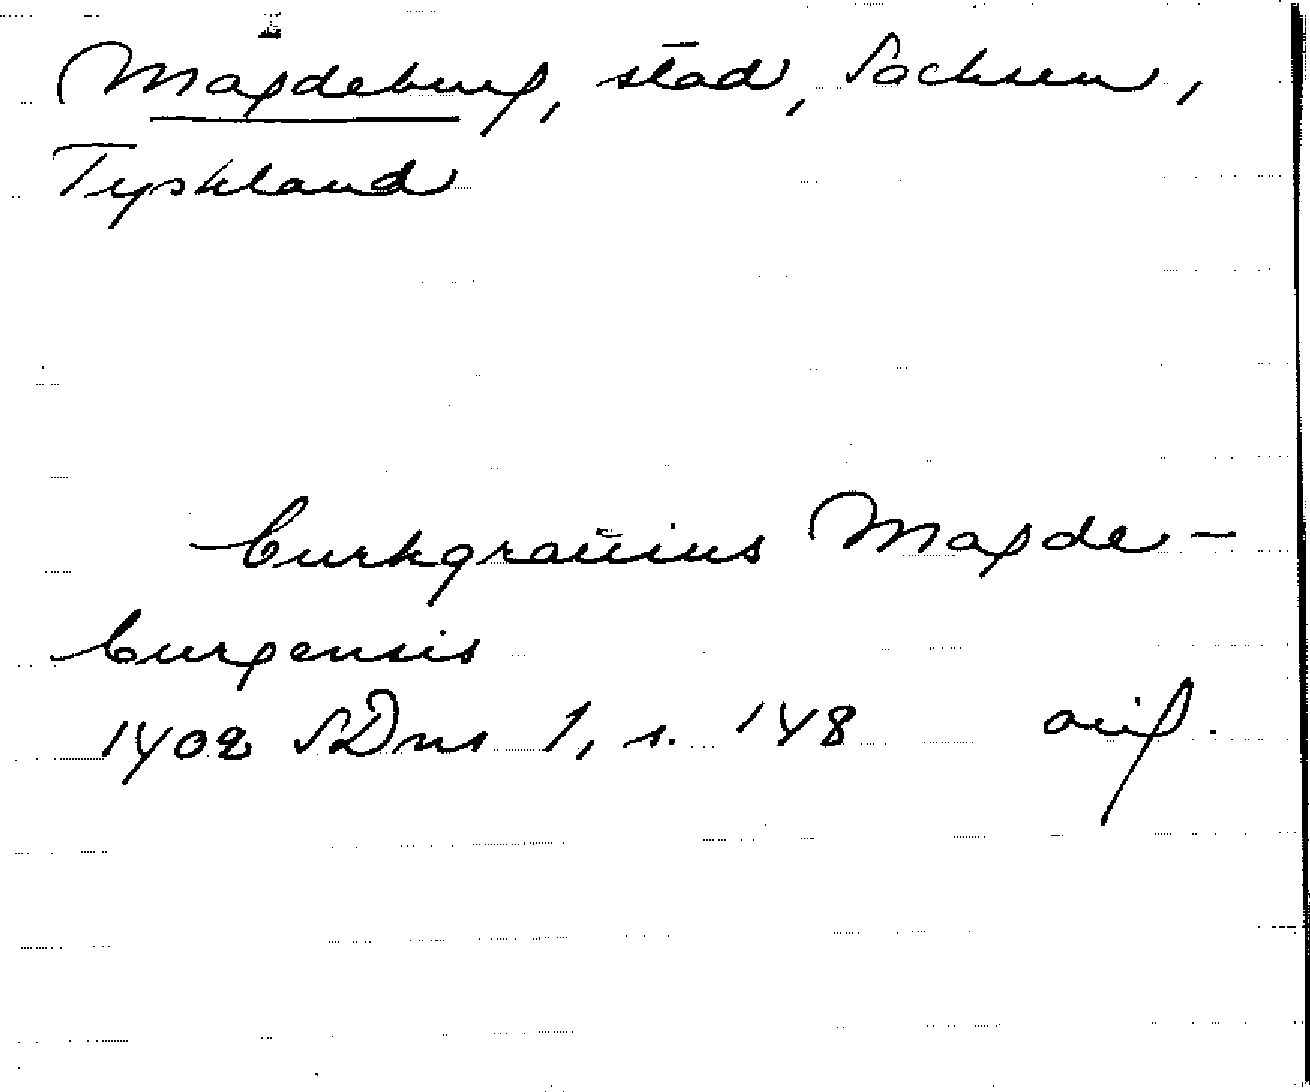 Magdeburg, stad, Sachsen,
Tyskland
burkgrauius Magde-
burgensis
1402 SDns 1, s. 148 orig.